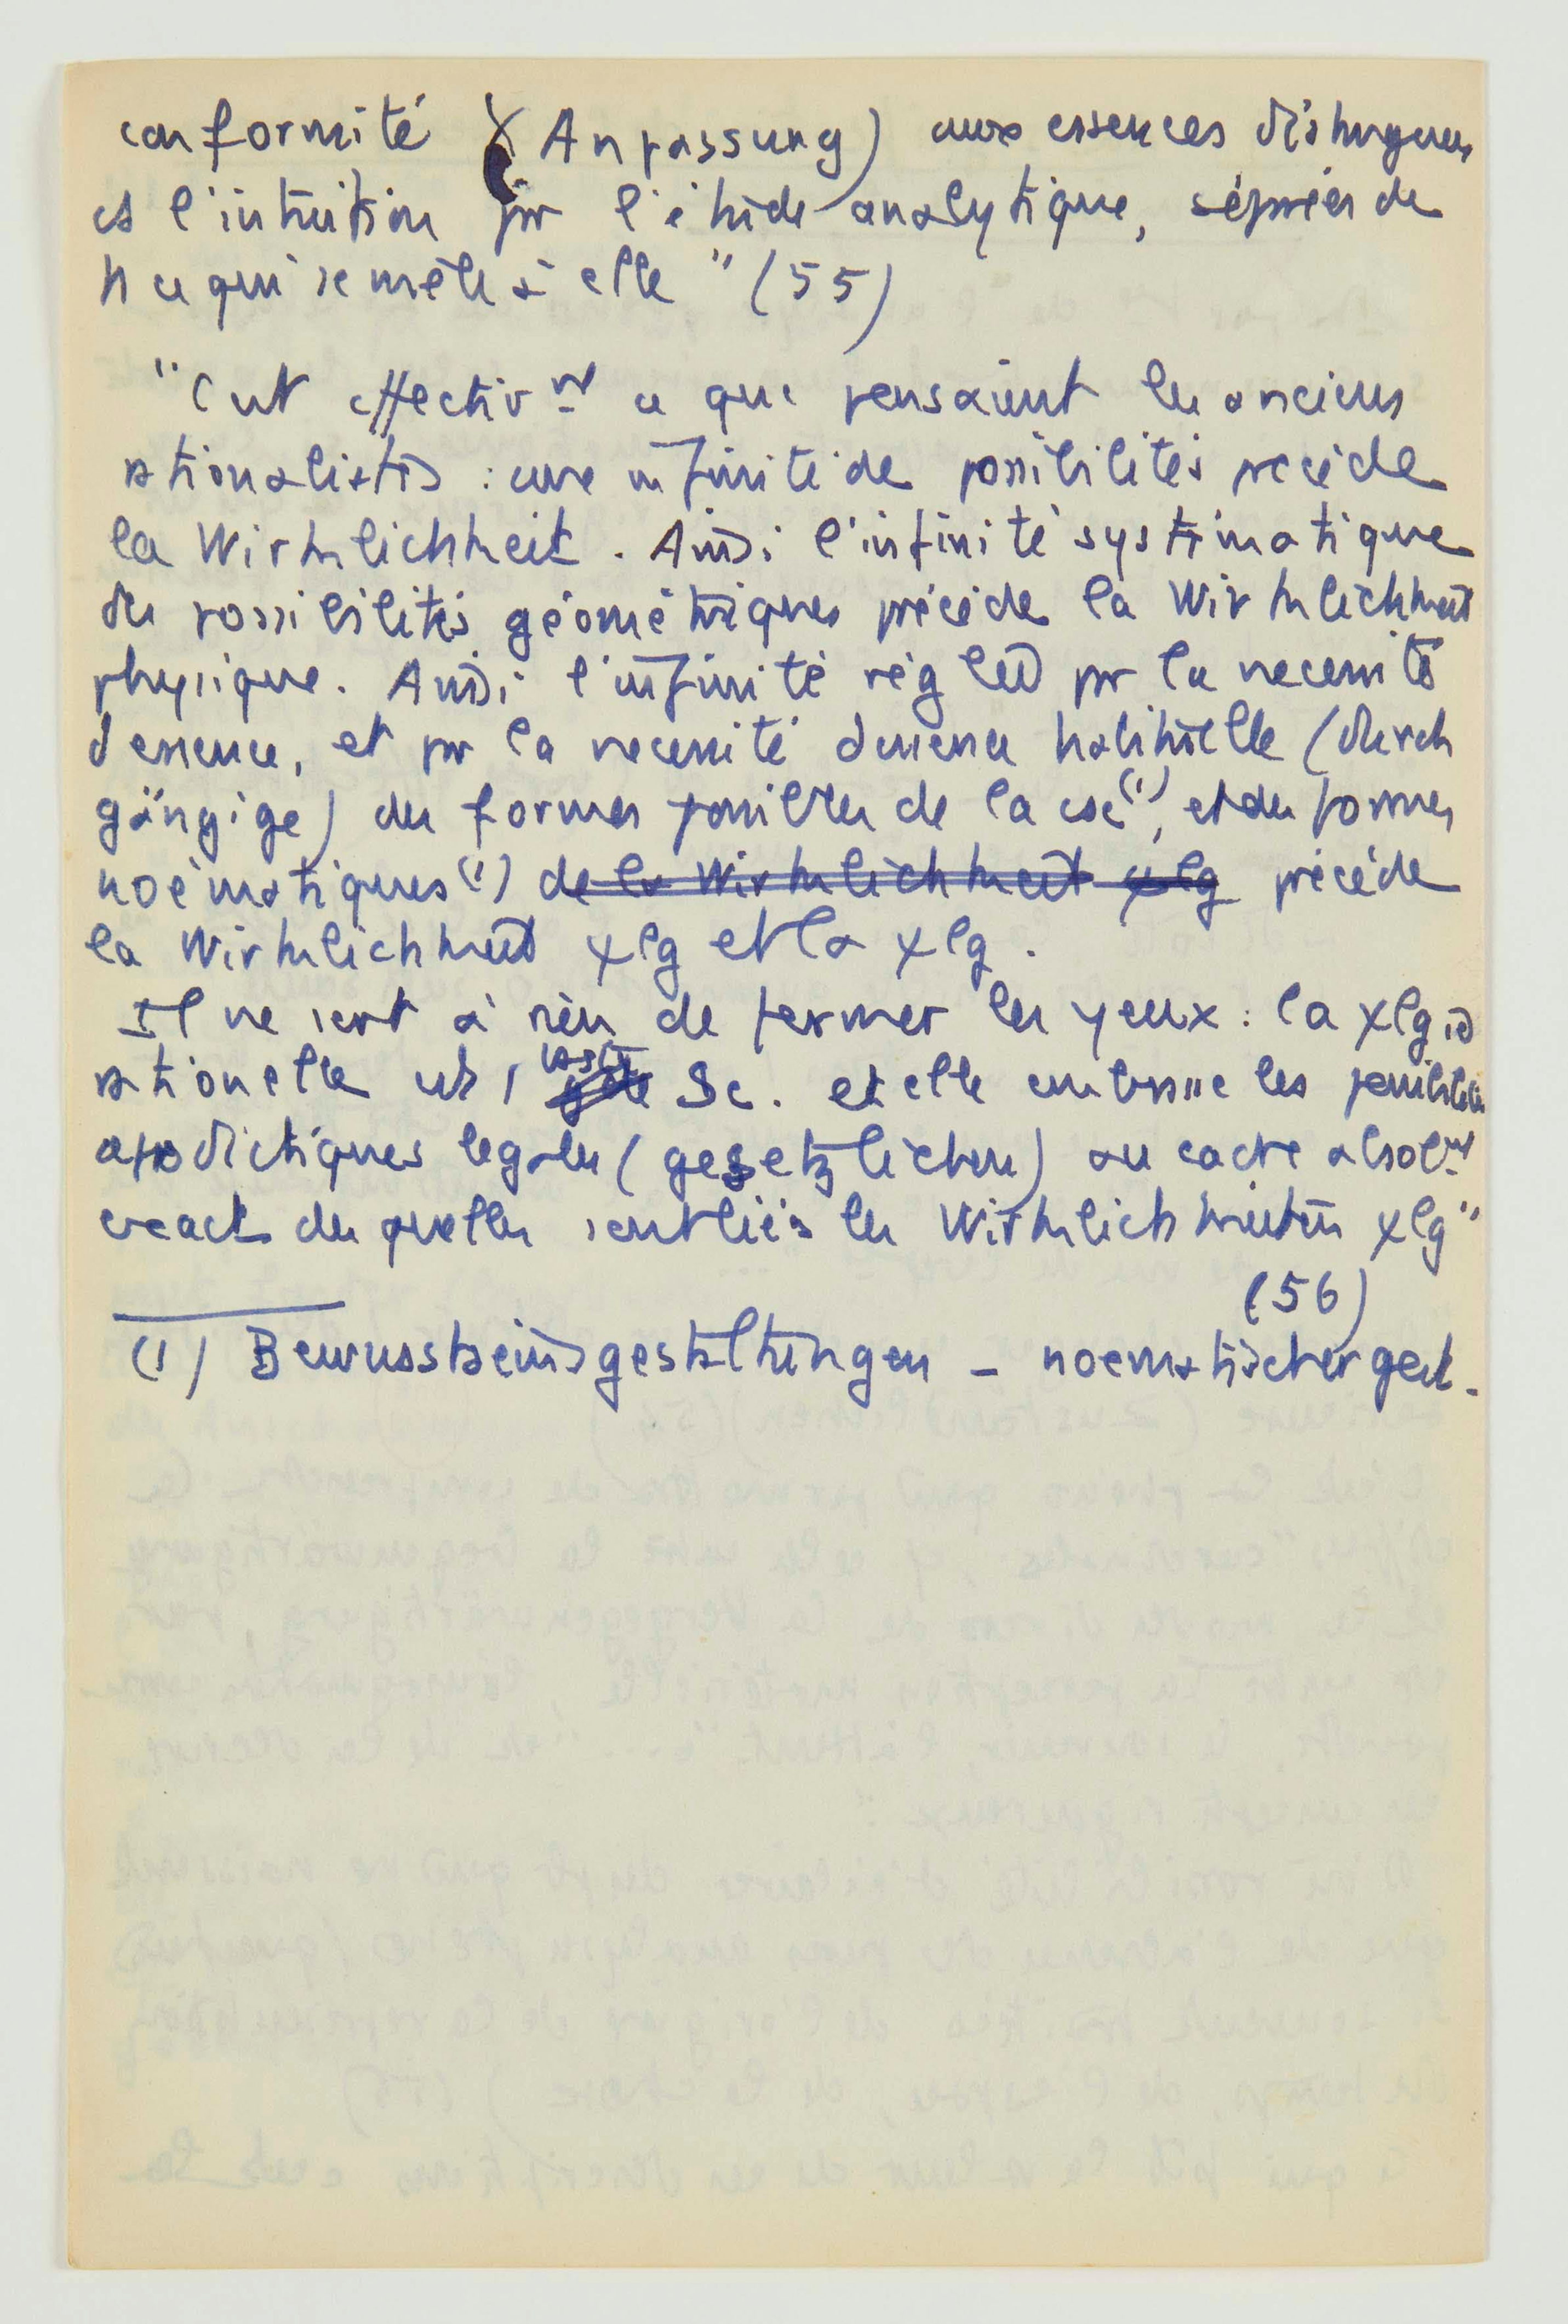 conformité (Anpassung) aux essences distingues
et l'intuition pr l'étude analytique, séprée de
tt ce qui se mêle à elle" (55)
"C'est effectivnt ce que pensaient les anciens
rationalistes : une infinité de possibilités precède
la Wirklichkeit. Ainsi l'infinité systématique
des possibilités géométriques précède la Wirklichkeit
physique. Ainsi l'infinité réglée pr la necessité
d'essence, et pr la necessité d'essence habituelle (durch
gängige) des formes possibles de la csc(1), et des formes
noématiques(1) de la Wirklichkeit χlg précède
la Wirklichkeit χlg et la χlg.
Il ne sert à rien de fermer les yeux : la χlgie
rationelle est 1 Sc. et elle embrasse les possibilités
apodictiques legales (gesetzlichen) au cadre absolnt
exact des quelles sont liés les Wirklichkeiten χlg"
(56)
(1) Bewusstseinsgestaltungen - noematischer gest.